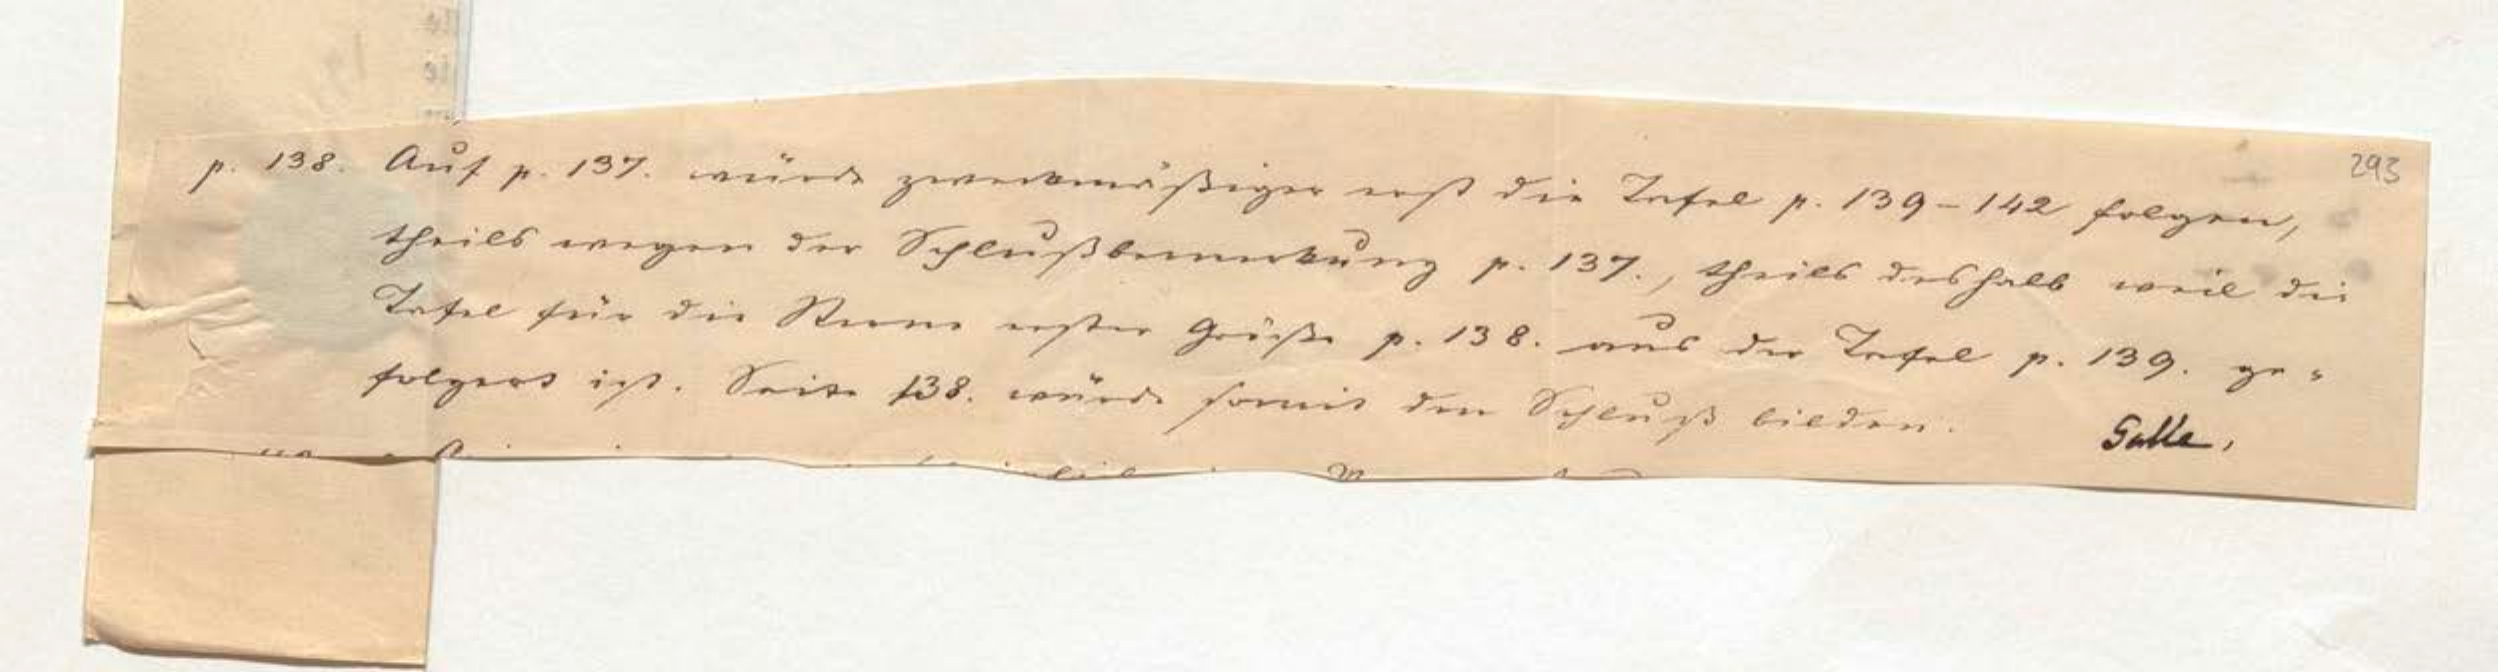 293
p. 138. Auf p. 137. würde zweckmäßiger erst die Tafel p. 139-142 folgen,
theils wegen der Schlußbemerkung p. 137., theils deshalb weil die
Tafel für die Sterne erster Größe p. 138. aus der Tafel p. 139. ge=
folgert ist. Seite 138. würde somit den Schluß bilden.
Galle.